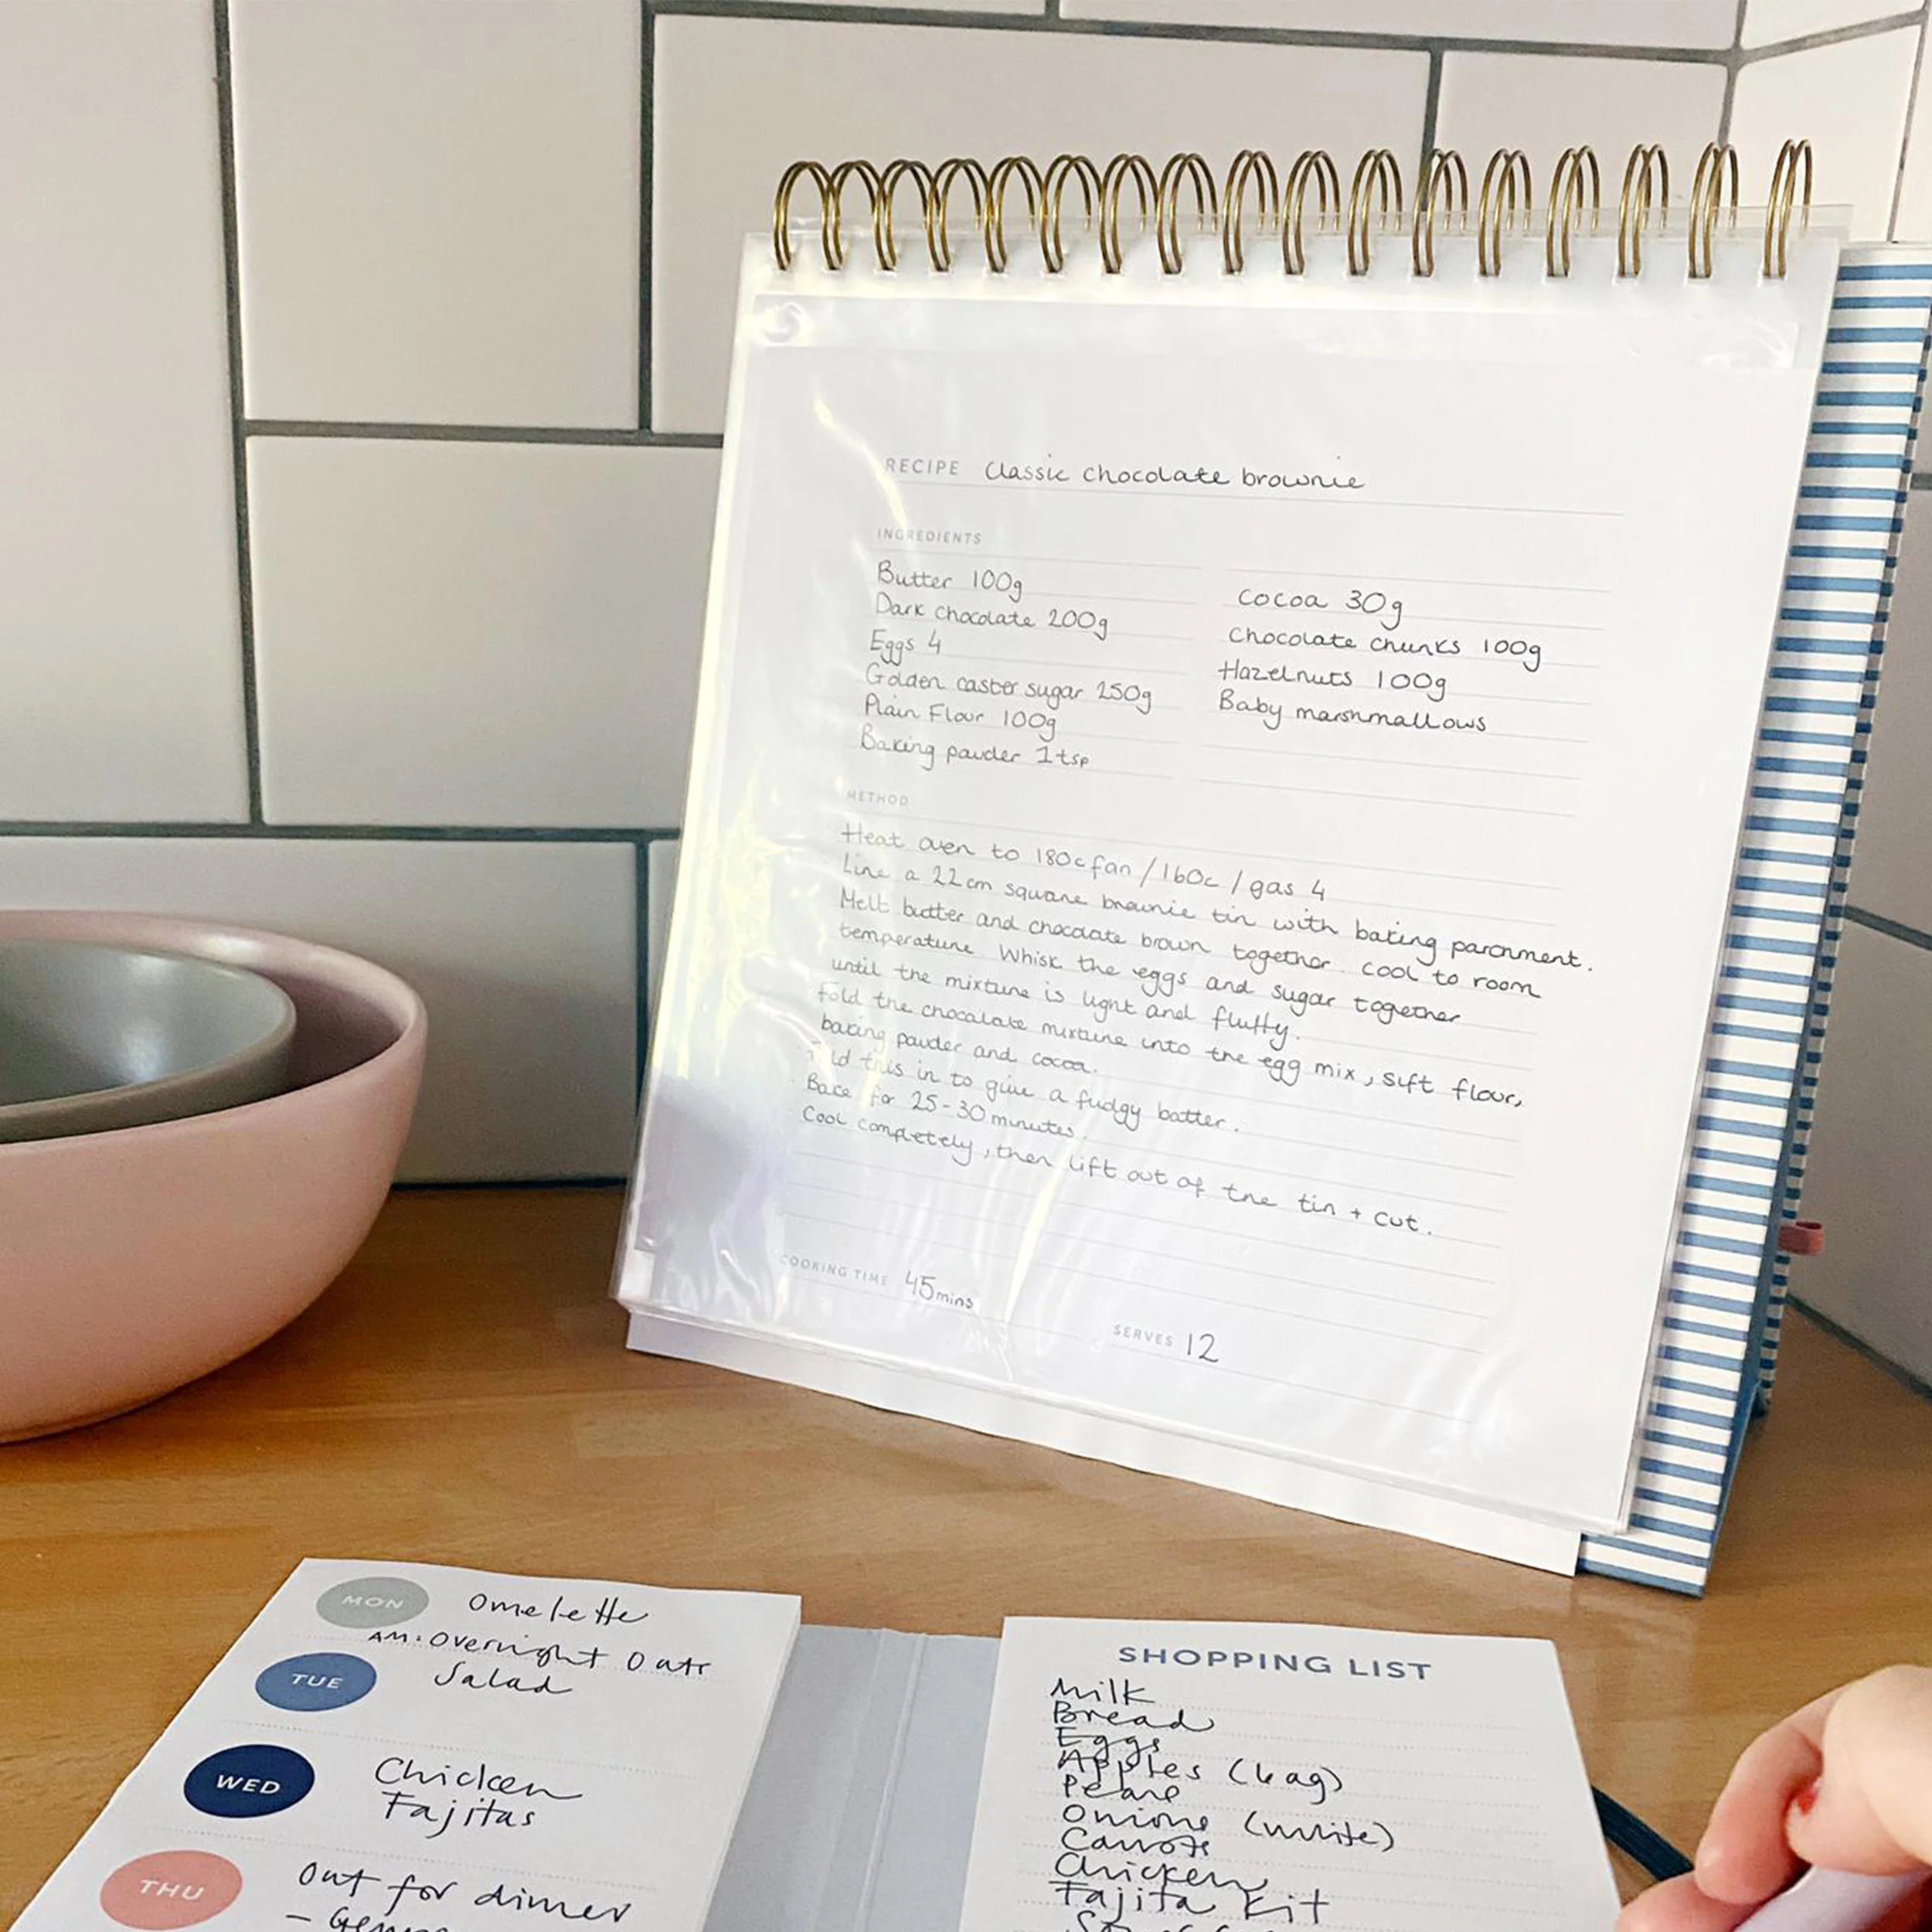 RECIPE Classic chocolate brownie
INGREDIENTS
Butter 100g
Dark chocolate 200g
Eggs 4
Golden caster sugar 250g
Plain Flour 100g
Baking powder 1tsp
Cocoa 30g
Chocolate chunks 100g
Hazelnuts 100g
Baby marshmallows
METHOD
Heat oven to 180c fan / 160c / gas 4
Line a 22cm square brownie tin with baking parchment.
Melt butter and chocolate brown together. cool to room
temperature. Whisk the eggs and sugar together
until the mixture is light and fluffy.
Fold the chocolate mixture into the egg mix, sift flour,
baking powder and cocoa.
Fold this in to give a fudgy batter.
Bake for 25-30 minutes.
Cool completely, then lift out of the tin + cut.
COOKING TIME 45mins
SERVES 12
MON Omelette
AM: Overnight Oats
TUE Salad
WED Chicken
Fajitas
THU Out for dinner
-
SHOPPING LIST
Milk
Bread
Eggs
Apples (bag)
Pears
Onions (white)
Carrots
Chicken
Fajita Kit